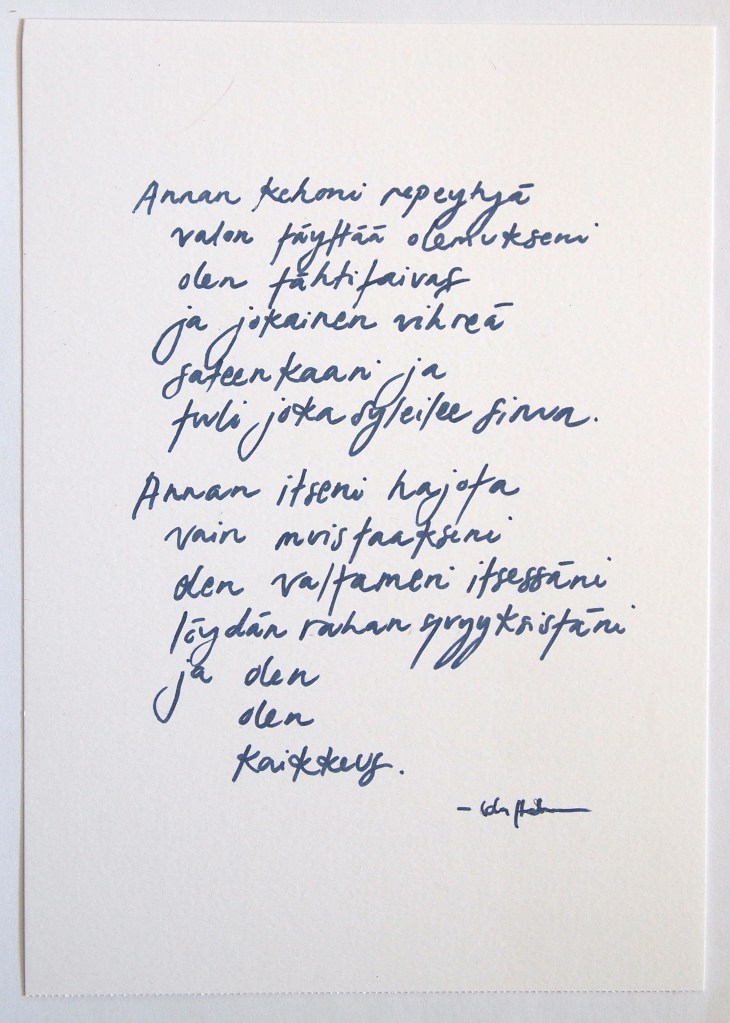 Annan kehoni repeytyä
valon täyttää olemukseni
olen tähtitaivas
ja jokainen vihreä
sateenkaari ja
tuli joka syleilee sinua.
Annan itseni hajota
vain muistaakseni
olen valtameri itsessäni
löydän rauhan syvyyksistäni
ja olen
olen
kaikkeus.